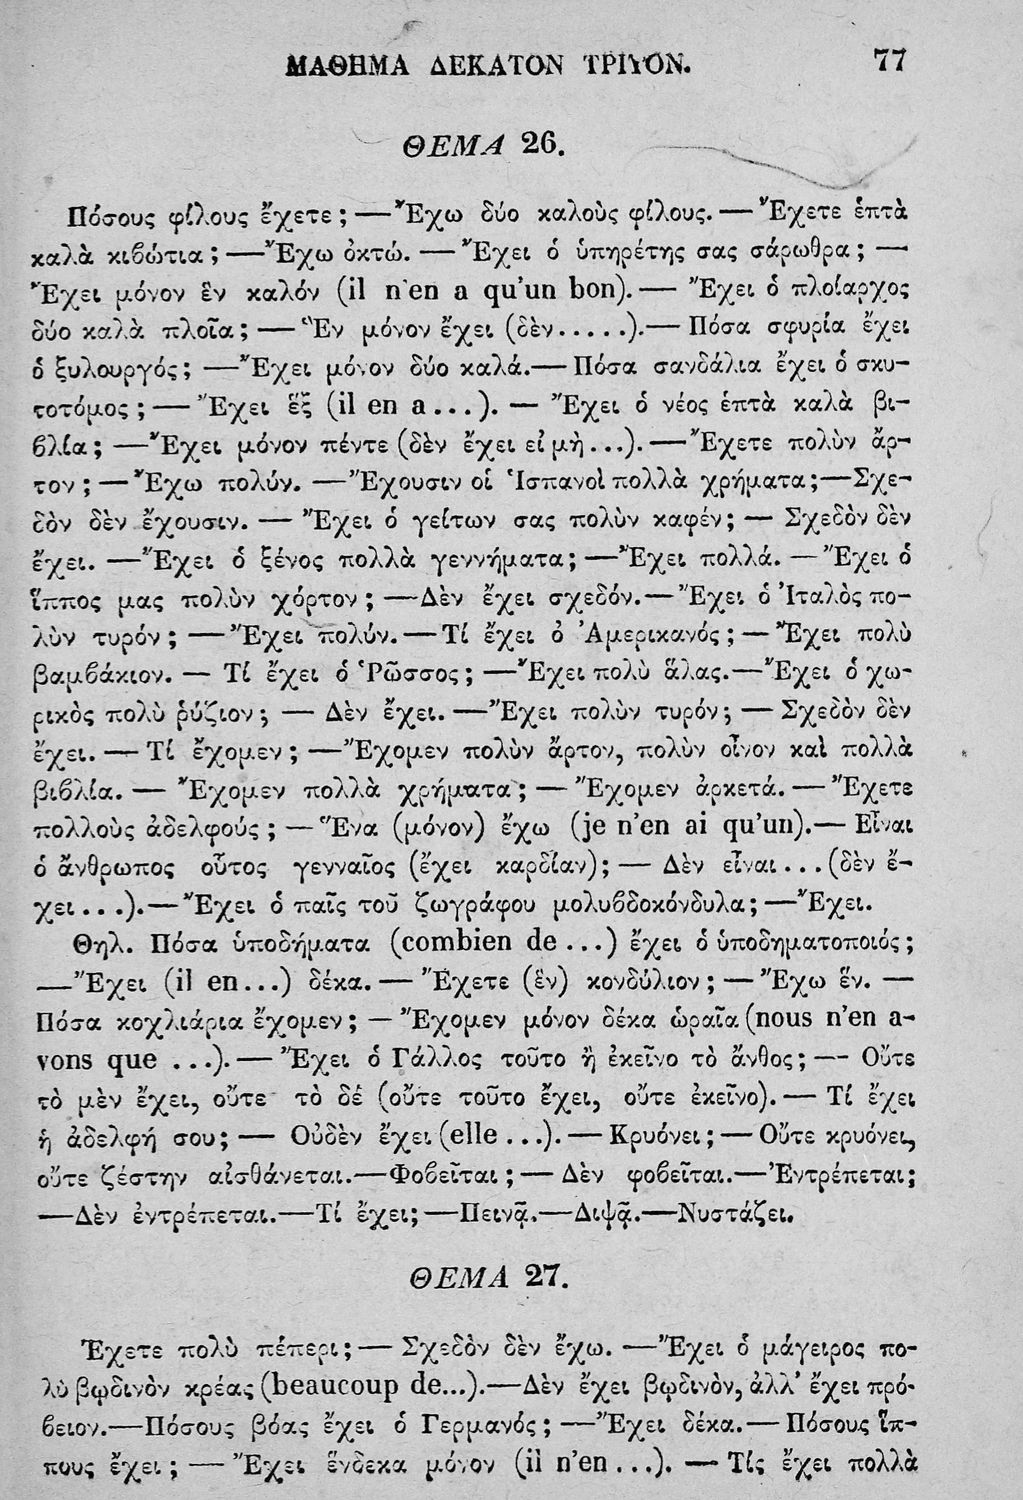 ΜΑΘΗΜΑ ΔΕΚΑΤΟΝ ΤΡΙΤΟΝ. 77
ΘΕΜΑ 26.
Πόσους φίλους ἔχετε; — Ἔχω δύο καλοὺς φίλους. — Ἔχετε ἑπτὰ
καλὰ κιβώτια; — Ἔχω ὀκτώ. — Ἔχει ὁ ὑπηρέτης σας σάρωθρα; —
Ἔχει μόνον ἓν καλόν (il n'en a qu'un bon). — Ἔχει ὁ πλοίαρχος
δύο καλὰ πλοῖα; — Ἓν μόνον ἔχει (δὲν.....). — Πόσα σφυρία ἔχει
ὁ ξυλουργός; — Ἔχει μόνον δύο καλά. — Πόσα σανδάλια ἔχει ὁ σκυ-
τοτόμος; — Ἔχει ἓξ (il en a...). — Ἔχει ὁ νέος ἑπτὰ καλὰ βι-
βλία; — Ἔχει μόνον πέντε (δὲν ἔχει εἰ μὴ...). — Ἔχετε πολὺν ἄρ-
τον; — Ἔχω πολύν. — Ἔχουσιν οἱ Ἱσπανοὶ πολλὰ χρήματα; — Σχε-
δὸν δὲν ἔχουσιν. — Ἔχει ὁ γείτων σας πολὺν καφέν; — Σχεδὸν δὲν
ἔχει. — Ἔχει ὁ ξένος πολλὰ γεννήματα; — Ἔχει πολλά. — Ἔχει ὁ
ἵππος μας πολὺν χόρτον; — Δὲν ἔχει σχεδόν. — Ἔχει ὁ Ἰταλὸς πο-
λὺν τυρόν; — Ἔχει πολύν. — Τί ἔχει ὁ Ἀμερικανός; — Ἔχει πολὺ
βαμβάκιον. — Τί ἔχει ὁ Ῥῶσσος; — Ἔχει πολὺ ἅλας. — Ἔχει ὁ χω-
ρικὸς πολὺ ῥύζιον; — Δὲν ἔχει. — Ἔχει πολὺν τυρόν; — Σχεδὸν δὲν
ἔχει. — Τί ἔχομεν; — Ἔχομεν πολὺν ἄρτον, πολὺν οἶνον καὶ πολλὰ
βιβλία. — Ἔχομεν πολλὰ χρήματα; — Ἔχομεν ἀρκετά. — Ἔχετε
πολλοὺς ἀδελφούς; — Ἕνα (μόνον) ἔχω (je n'en ai qu'un). — Εἶναι
ὁ ἄνθρωπος οὗτος γενναῖος (ἔχει καρδίαν); — Δὲν εἶναι...(δὲν ἔ-
χει...). — Ἔχει ὁ παῖς τοῦ ζωγράφου μολυβδοκόνδυλα; — Ἔχει.
Θηλ. Πόσα ὑποδήματα (combien de...) ἔχει ὁ ὑποδηματοποιός;
— Ἔχει (il en...) δέκα. — Ἔχετε (ἓν) κονδύλιον; — Ἔχω ἕν. —
Πόσα κοχλιάρια ἔχομεν; — Ἔχομεν μόνον δέκα ὡραῖα (nous n'en a-
vons que ...). — Ἔχει ὁ Γάλλος τοῦτο ἢ ἐκεῖνο τὸ ἄνθος; — Οὔτε
τὸ μὲν ἔχει, οὔτε τὸ δέ (οὔτε τοῦτο ἔχει, οὔτε ἐκεῖνο). — Τί ἔχει
ἡ ἀδελφή σου; — Οὐδὲν ἔχει (elle...). — Κρυόνει; — Οὔτε κρυόνει,
οὔτε ζέστην αἰσθάνεται. — Φοβεῖται; — Δὲν φοβεῖται. — Ἐντρέπεται;
— Δὲν ἐντρέπεται. — Τί ἔχει; — Πεινᾷ. — Διψᾷ. — Νυστάζει.
ΘΕΜΑ 27.
Ἔχετε πολὺ πέπερι; — Σχεδὸν δὲν ἔχω. — Ἔχει ὁ μάγειρος πο-
λὺ βῳδινὸν κρέας (beaucoup de...). — Δὲν ἔχει βῳδινὸν, ἀλλ' ἔχει πρό-
βειον. — Πόσους βόας ἔχει ὁ Γερμανός; — Ἔχει δέκα. — Πόσους ἵπ-
πους ἔχει; — Ἔχει ἕνδεκα μόνον (il n'en...). — Τίς ἔχει πολλὰ